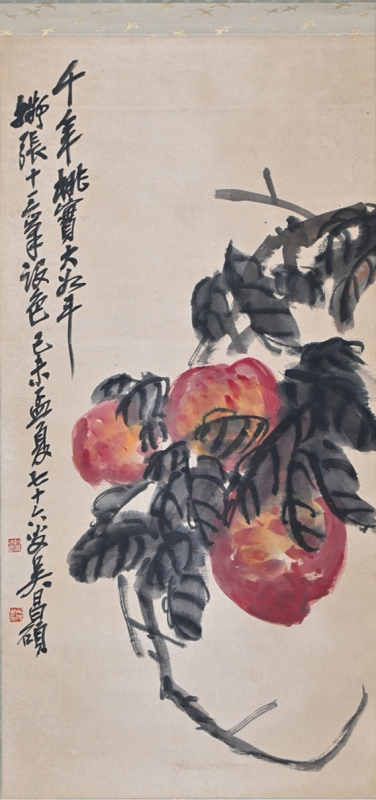 千年桃實大如斗
擬張十三筆設色己未孟夏七十六歲吳昌碩